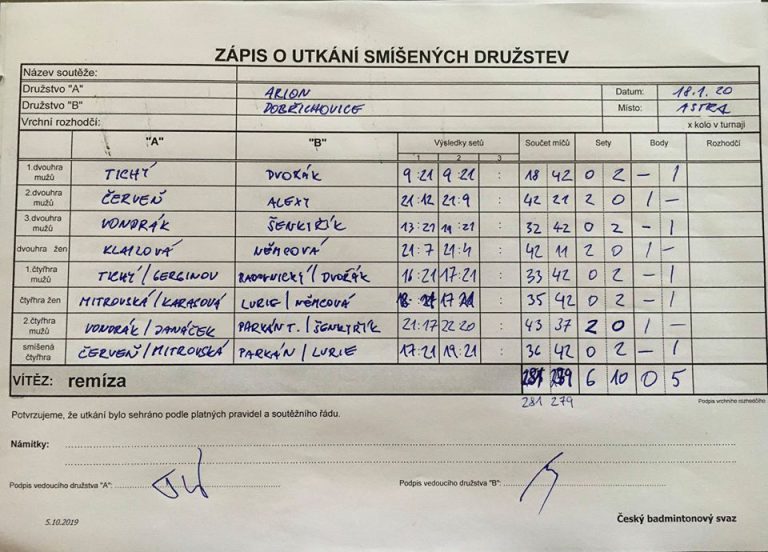 ZÁPIS O UTKÁNÍ SMÍŠENÝCH DRUŽSTEV
Název soutěže:
Družstvo "A" ARION Datum: 18.1.20
Družstvo "B" DOBŘICHOVICE Místo: ASTRA
Vrchní rozhodčí: x kolo v turnaji
"A" "B" Výsledky setů Součet míčů Sety Body Rozhodčí
1 2 3
1.dvouhra mužů TICHÝ DVOŘÁK 9:21 9:21 : 18 42 0 2 – 1
2.dvouhra mužů ČERVEŇ ALEXY 21:12 21:9 : 42 21 2 0 1 –
3.dvouhra mužů VONDRÁK ŠENKYŘÍK 13:21 19:21 : 32 42 0 2 – 1
dvouhra žen KLAILOVÁ NĚMCOVÁ 21:7 21:4 : 42 11 2 0 1
1.čtyřhra mužů TICHÝ/GERGINOV RADOVNICKÝ/DVOŘÁK 16:21 17:21 : 33 42 0 2 – 1
čtyřhra žen MITROVSKÁ/KARASOVÁ LURIE/NĚMCOVÁ 18:21 17:21 : 35 42 0 2 – 1
2.čtyřhra mužů VONDRÁK/JANÁČEK PARKÁN T./ŠENKYŘÍK 21:17 22:20 : 43 37 2 0 1 –
smíšená čtyřhra ČERVEŇ/MITROVSKÁ PARKÁN/LURIE 17:21 19:21 : 36 42 0 2 – 1
VÍTĚZ: remíza 281 279 6 10 0 5
281 279 Podpis vrchního rozhodčího
Potvrzujeme, že utkání bylo sehráno podle platných pravidel a soutěžního řádu.
Námitky:
Podpis vedoucího družstva "A": Podpis vedoucího družstva "B":
5.10.2019 Český badmintonový svaz